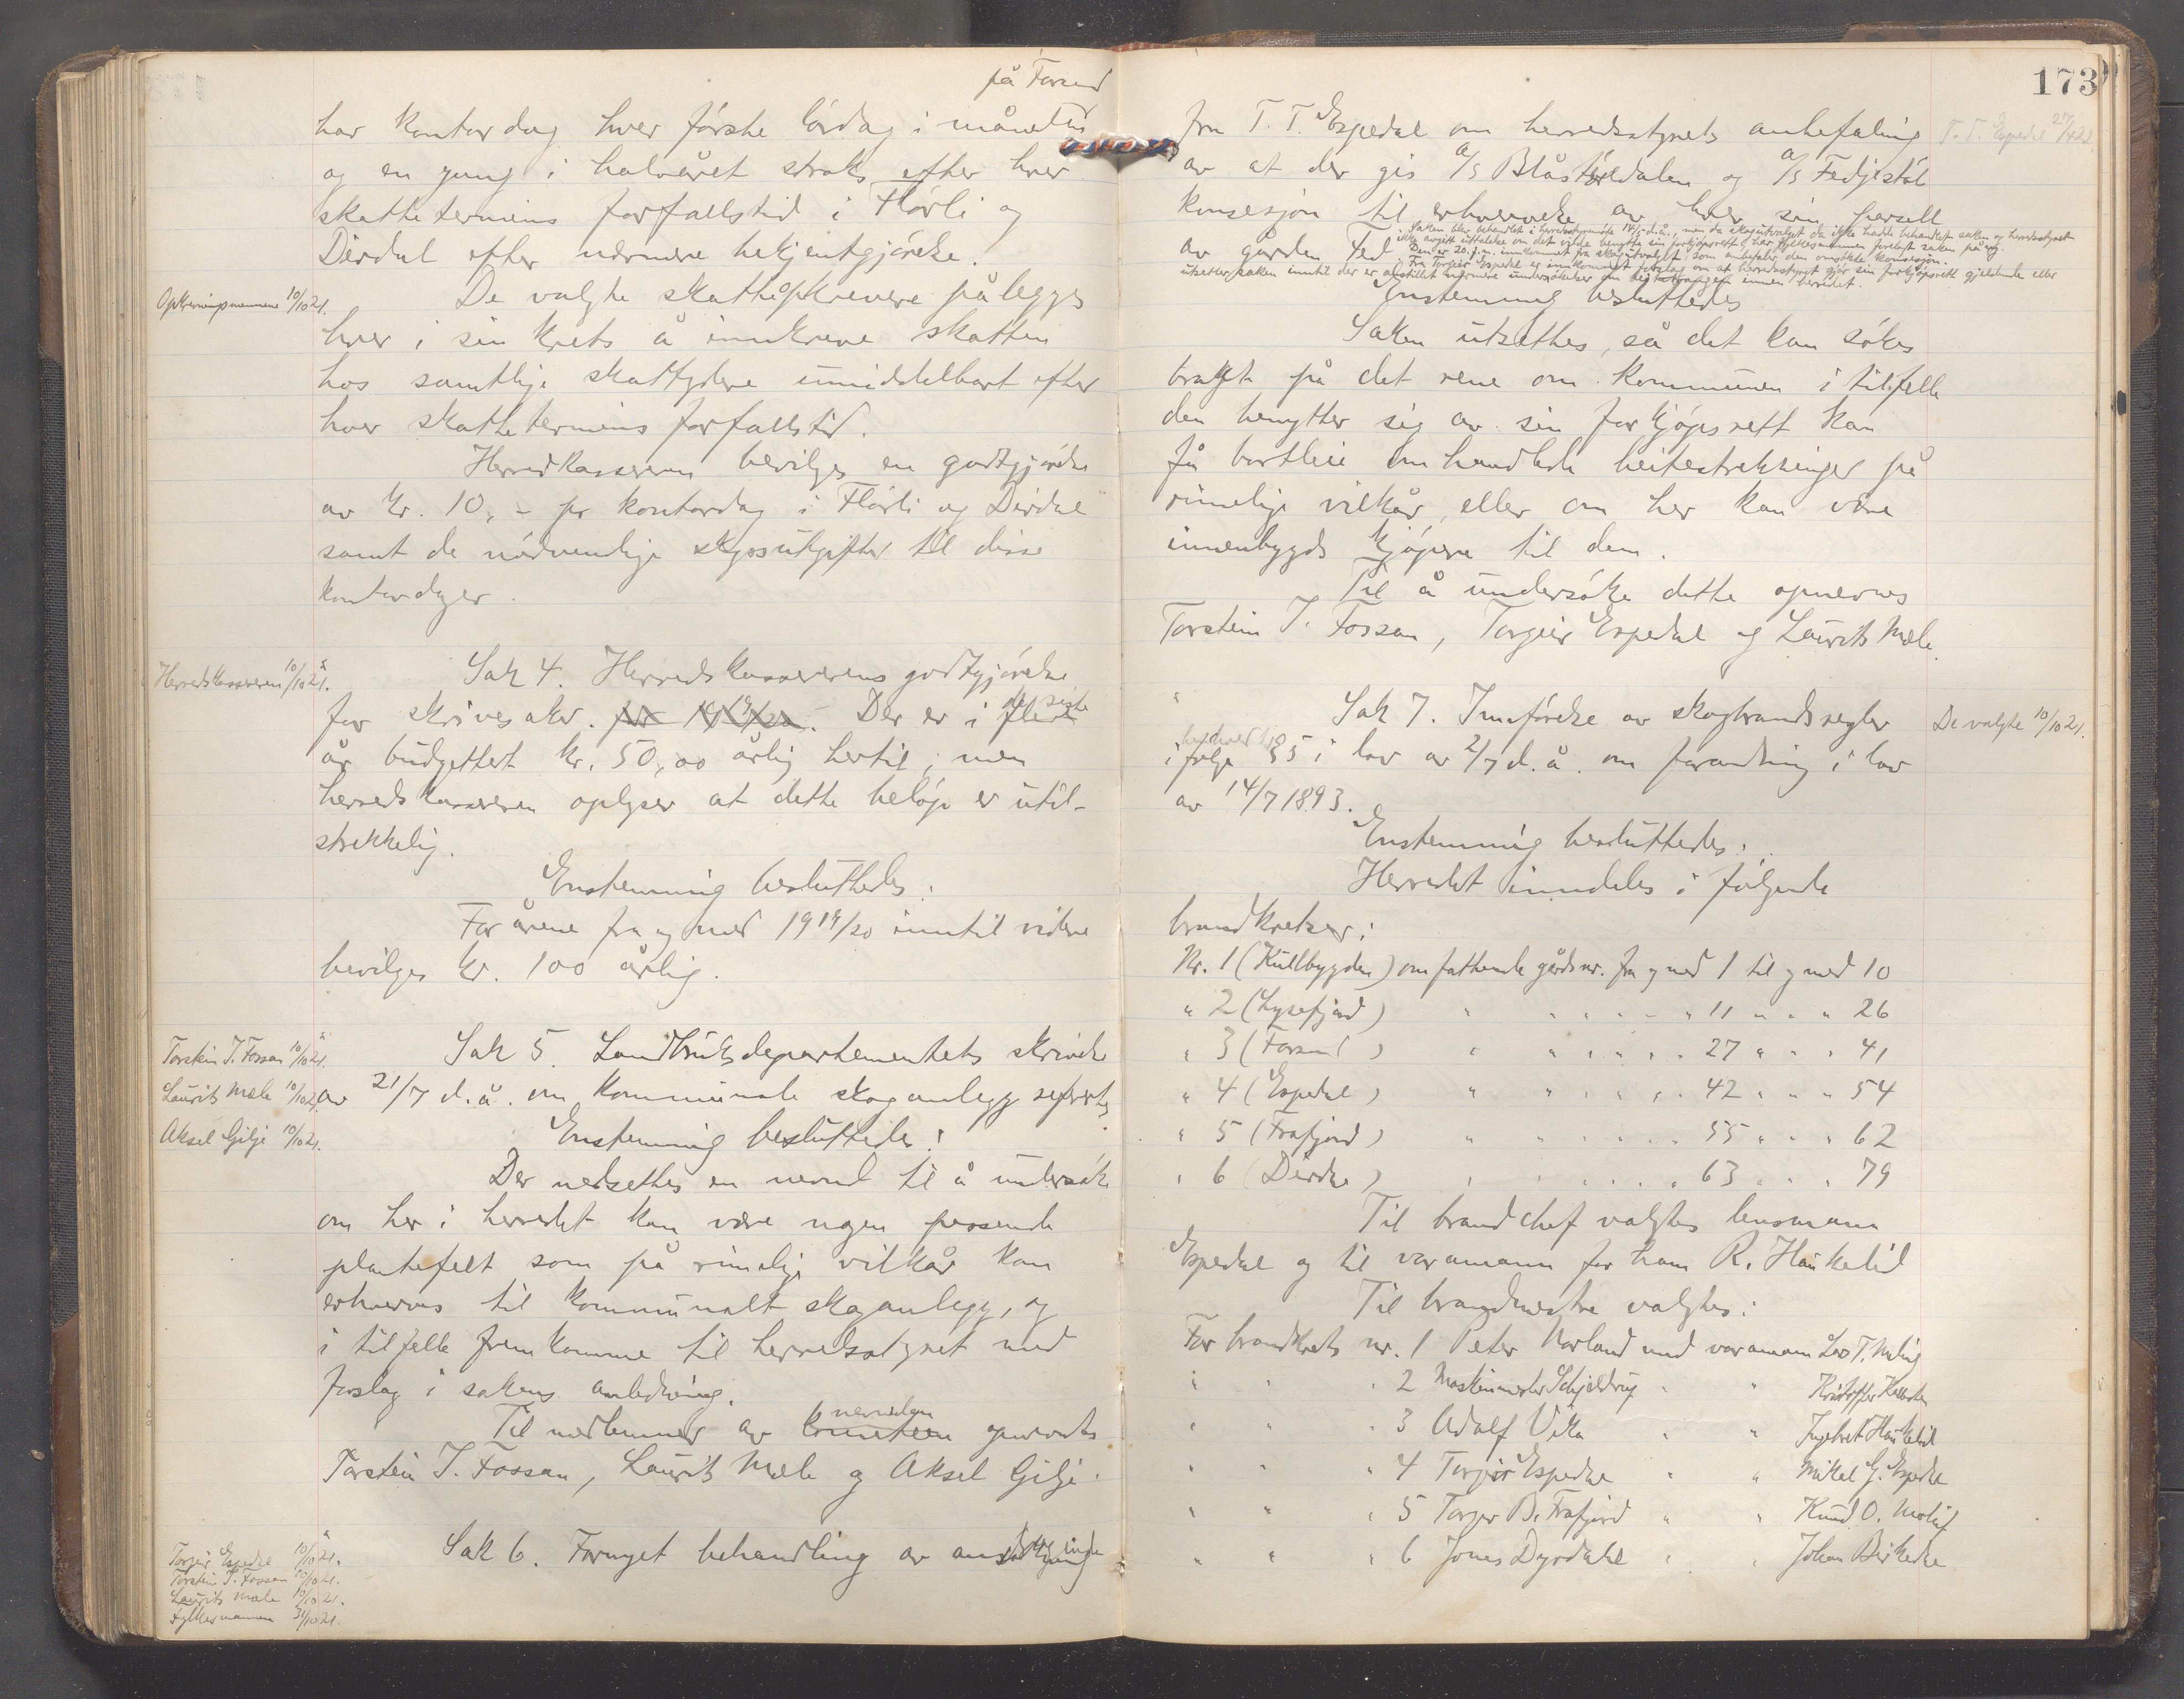 på Forsand
har kontordag hver første lørdag i måneden
og en gang i halvåret straks efter hver
skattetermins forfallstid i Flørli og
Dirdal efter nærmere bekjentgjørelse.
Opkrevningsmennene 10/10 21.
De valgte skatteopkrevere pålegges
hver i sin krets å innkreve skatten
hos samtlige skattydere umiddelbart efter
hver skattetermins forfallstid.
Herredkassereren bevilges en godtgjørelse
av kr. 10,- pr kontordag i Flørli og Dirdal
samt de nødvendige skyssutgifter til disse
kontordager.
Herredskassereren 10/10 21.
Sak 4. Herredskassererens godtgjørelse
for skrivesaker. for 1919/20. Der er i flere de siste
år budgettert kr. 50,00 årlig hertil, men
herredskassereren oplyser at dette beløp er util-
strekkelig.
Enstemmig besluttedes:
For årene fra og med 1919/20 inntil videre
bevilges kr. 100 årlig.
Torstein T. Fossan 10/10 21.
Laurits Mæle 10/10 21.
Aksel Gilje 10/10 21.
Sak 5. Landbruksdepartementets skrivelse
av 21/7 d.å. om kommunale skoganlegg refertes
Enstemmig besluttedes:
Der nedsettes en nevnd til å undersøke
om her i herredet kan være nogen passende
plantefelt som på rimelige vilkår kan
erhverves til kommunalt skoganlegg, og
i tilfelle fremkomme til herredsstyret med
forslag i sakens anledning.
Til medlemmer av komiteen nevnden opnevntes
Torstein T. Fossan, Laurits Mæle og Aksel Gilje.
Torgeir Espedal 10/10 21.
Torstein T. Fossan 10/10 21.
Laurits Mæle 10/10 21.
Fylkesmannen 31/10 21.
Sak 6. Fornyet behandling av andragende
173
fra T. T. Espedal om herredsstyrets anbefaling
T. T. Espedal 27/4 21
av at der gis A/S Blåstøldalen og A/S Fedjestøl
konsesjon til erhvervelse av hver sin parsell
av gården Fed.
Saken blev behandlet i herredsstyremøte 14/5 d.å., men da skogutvalget da ikke hadde behandlet saken og herredsstyret
ikke avgitt uttalelse om det vilde benytte sin forkjøpsrett, har fylkesmannen forelagt saken på ny.
Den er 20. f.m. innkommet fra skogutvalget, som anbefaler den omsøkte konsesjon.
Fra Torgeir Espedal er innkommet forslag om at herredsstyret gjør sin forkjøpsrett gjeldende eller
utsetter saken inntil der er anstillet nærmere undersøkelser innen herredet.
Enstemmig besluttedes
Saken utsettes, så det kan søkes
bragt på det rene om kommunen i tilfelle
den benytter sig av sin forkjøpsrett kan
få bortleie omhandlede beitestrekninger på
rimelige vilkår, eller om her kan være
innenbygds kjøpere til dem.
Til å undersøke dette opnevnes
Torstein T. Fossan, Torgeir Espedal og Laurits Mæle.
Sak 7. Innførelse av skogbrandsregler
De valgte 10/10 21.
i følge § 5 i lov av 2/7 d.å. om forandring i lov
av 14/7 1893.
Enstemmig besluttedes:
Herredet inndeles i følgende
brandkretser:
Nr. 1 (Kullbygden) omfattende gårdsnr. fra og med 1 til og med 10
" 2 (Lysefjord) " " " " " 11 " " " 26
" 3 (Forsand) " " " " " 27 " " " 41
" 4 (Espedal) " " " " " 42 " " " 54
" 5 (Frafjord) " " " " " 55 " " " 62
" 6 (Dirdal) " " " " " 63 " " " 79
Til brandchef valgtes lensmann
Espedal og til varamann for ham R. Haukalid
Til brandmestre valgtes:
For brandkrets nr. 1 Peter Norland med varamann Lars T. Meling
" " " 2 Maskinmester Schjeldrup " " Kristoffer
" " " 3 Adolf Vika " " Ingebret Haukalid
" " " 4 Torgeir Espedal " " Mikal G. Espedal
" " " 5 Torger B. Frafjord " " Knud O. Molaug
" " " 6 Jonas Dyrdahl " " Johan Birkedal